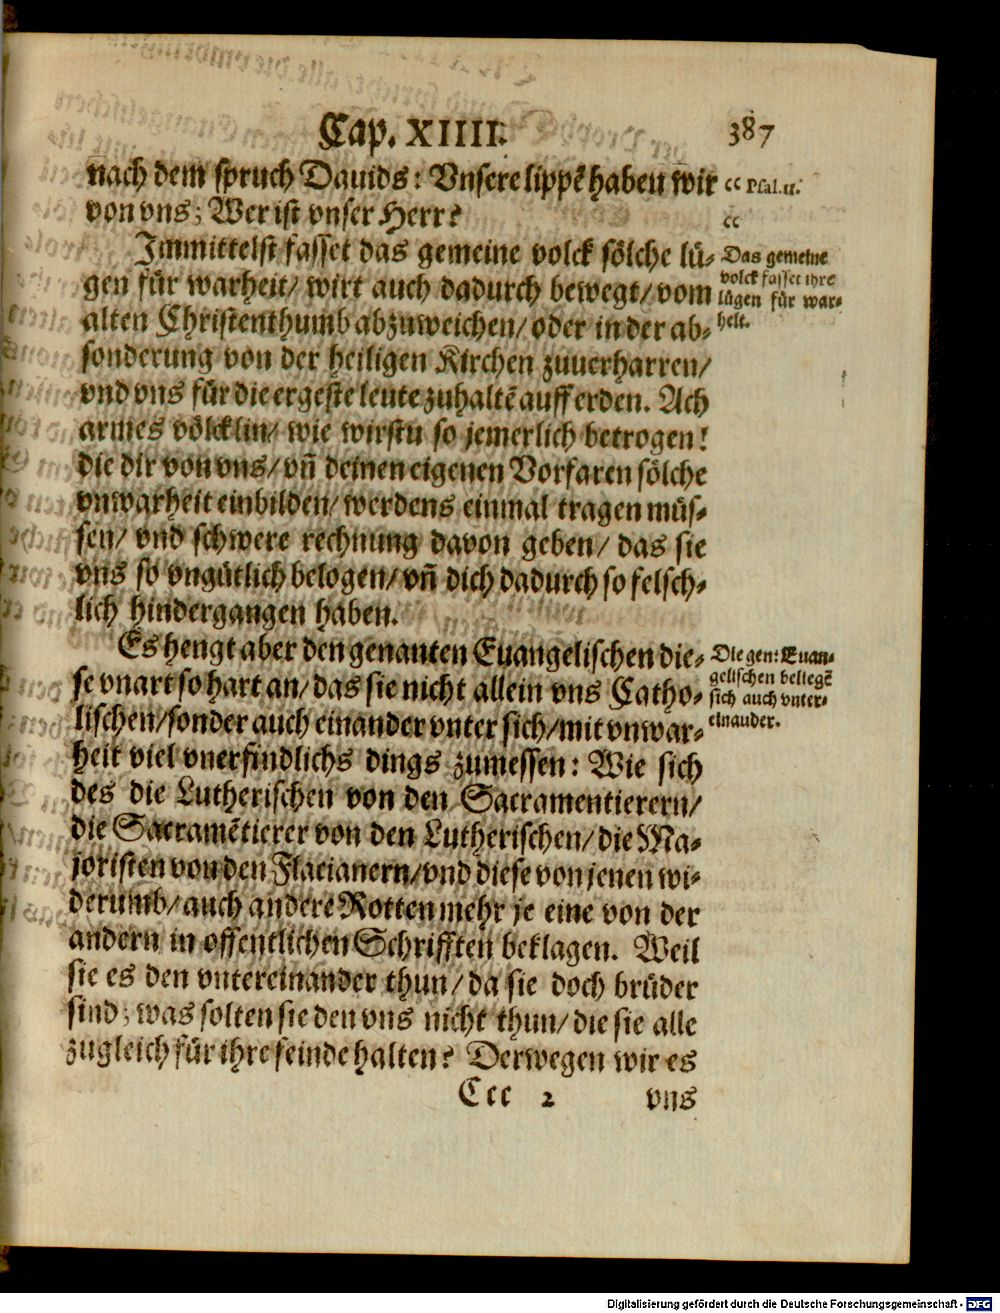 Cap. XIIII. 387
nach dem spruch Dauids: Vnsere lippẽ haben wir
von vns; Wer ist vnser Herr?
cc Psal. 11.
cc
Immittelst fasset das gemeine volck sölche lü-
gen für warheit/ wirt auch dadurch bewegt/ vom
alten Christenthumb abzuweichen/ oder in der ab-
sonderung von der heiligen Kirchen zuuerharren/
vnd vns für die ergeste leute zuhaltẽ auff erden. Ach
armes völcklin/ wie wirstu so jemerlich betrogen!
die dir von vns/ vñ deinen eigenen Vorfaren sölche
vnwarheit einbilden/ werdens einmal tragen müs-
sen/ vnd schwere rechnung davon geben/ das sie
vns so vngütlich belogen/ vñ dich dadurch so felsch-
lich hindergangen haben.
Das gemeine
volck fasset ihre
lügen für war-
heit.
Es hengt aber den genanten Euangelischen die-
se vnart so hart an/ das sie nicht allein vns Catho-
lischen/ sonder auch einander vnter sich/ mit vnwar-
heit viel vnerfindlichs dings zumessen: Wie sich
des die Lutherischen von den Sacramentierern/
die Sacramẽtierer von den Lutherischen/ die Ma-
joristen von den Flacianern/ vnd diese von jenen wi-
derumb/ auch andere Rotten mehr je eine von der
andern in offentlichen Schrifften beklagen. Weil
sie es den vntereinander thun/ da sie doch brüder
sind; was solten sie den vns nicht thun/ die sie alle
zugleich für ihre feinde halten? Derwegen wir es
Die gen: Euan-
gelischen beliegẽ
sich auch vnter-
einander.
Ccc 2 vns
Digitalisierung gefördert durch die Deutsche Forschungsgemeinschaft - DFG